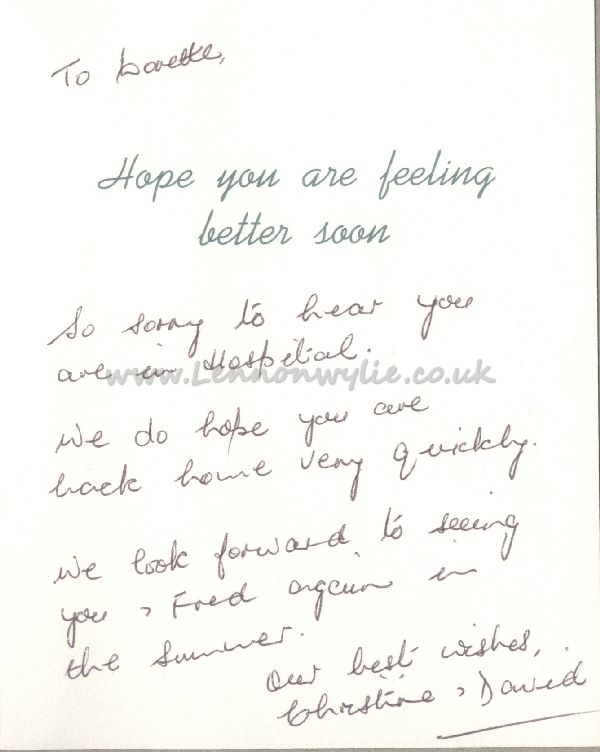 To Lorette,
Hope you are feeling
better soon
So sorry to hear you
are in Hospital.
www.Lennonwylie.co.uk
We do hope you are
back home very quickly.
We look forward to seeing
you & Fred again in
the summer.
Our best wishes,
Christine & David